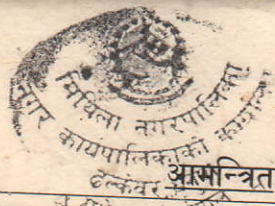 मिथिला नगरपालिका
नगर कार्यपालिकाको कार्यालय
ढल्केवर
आमन्त्रित